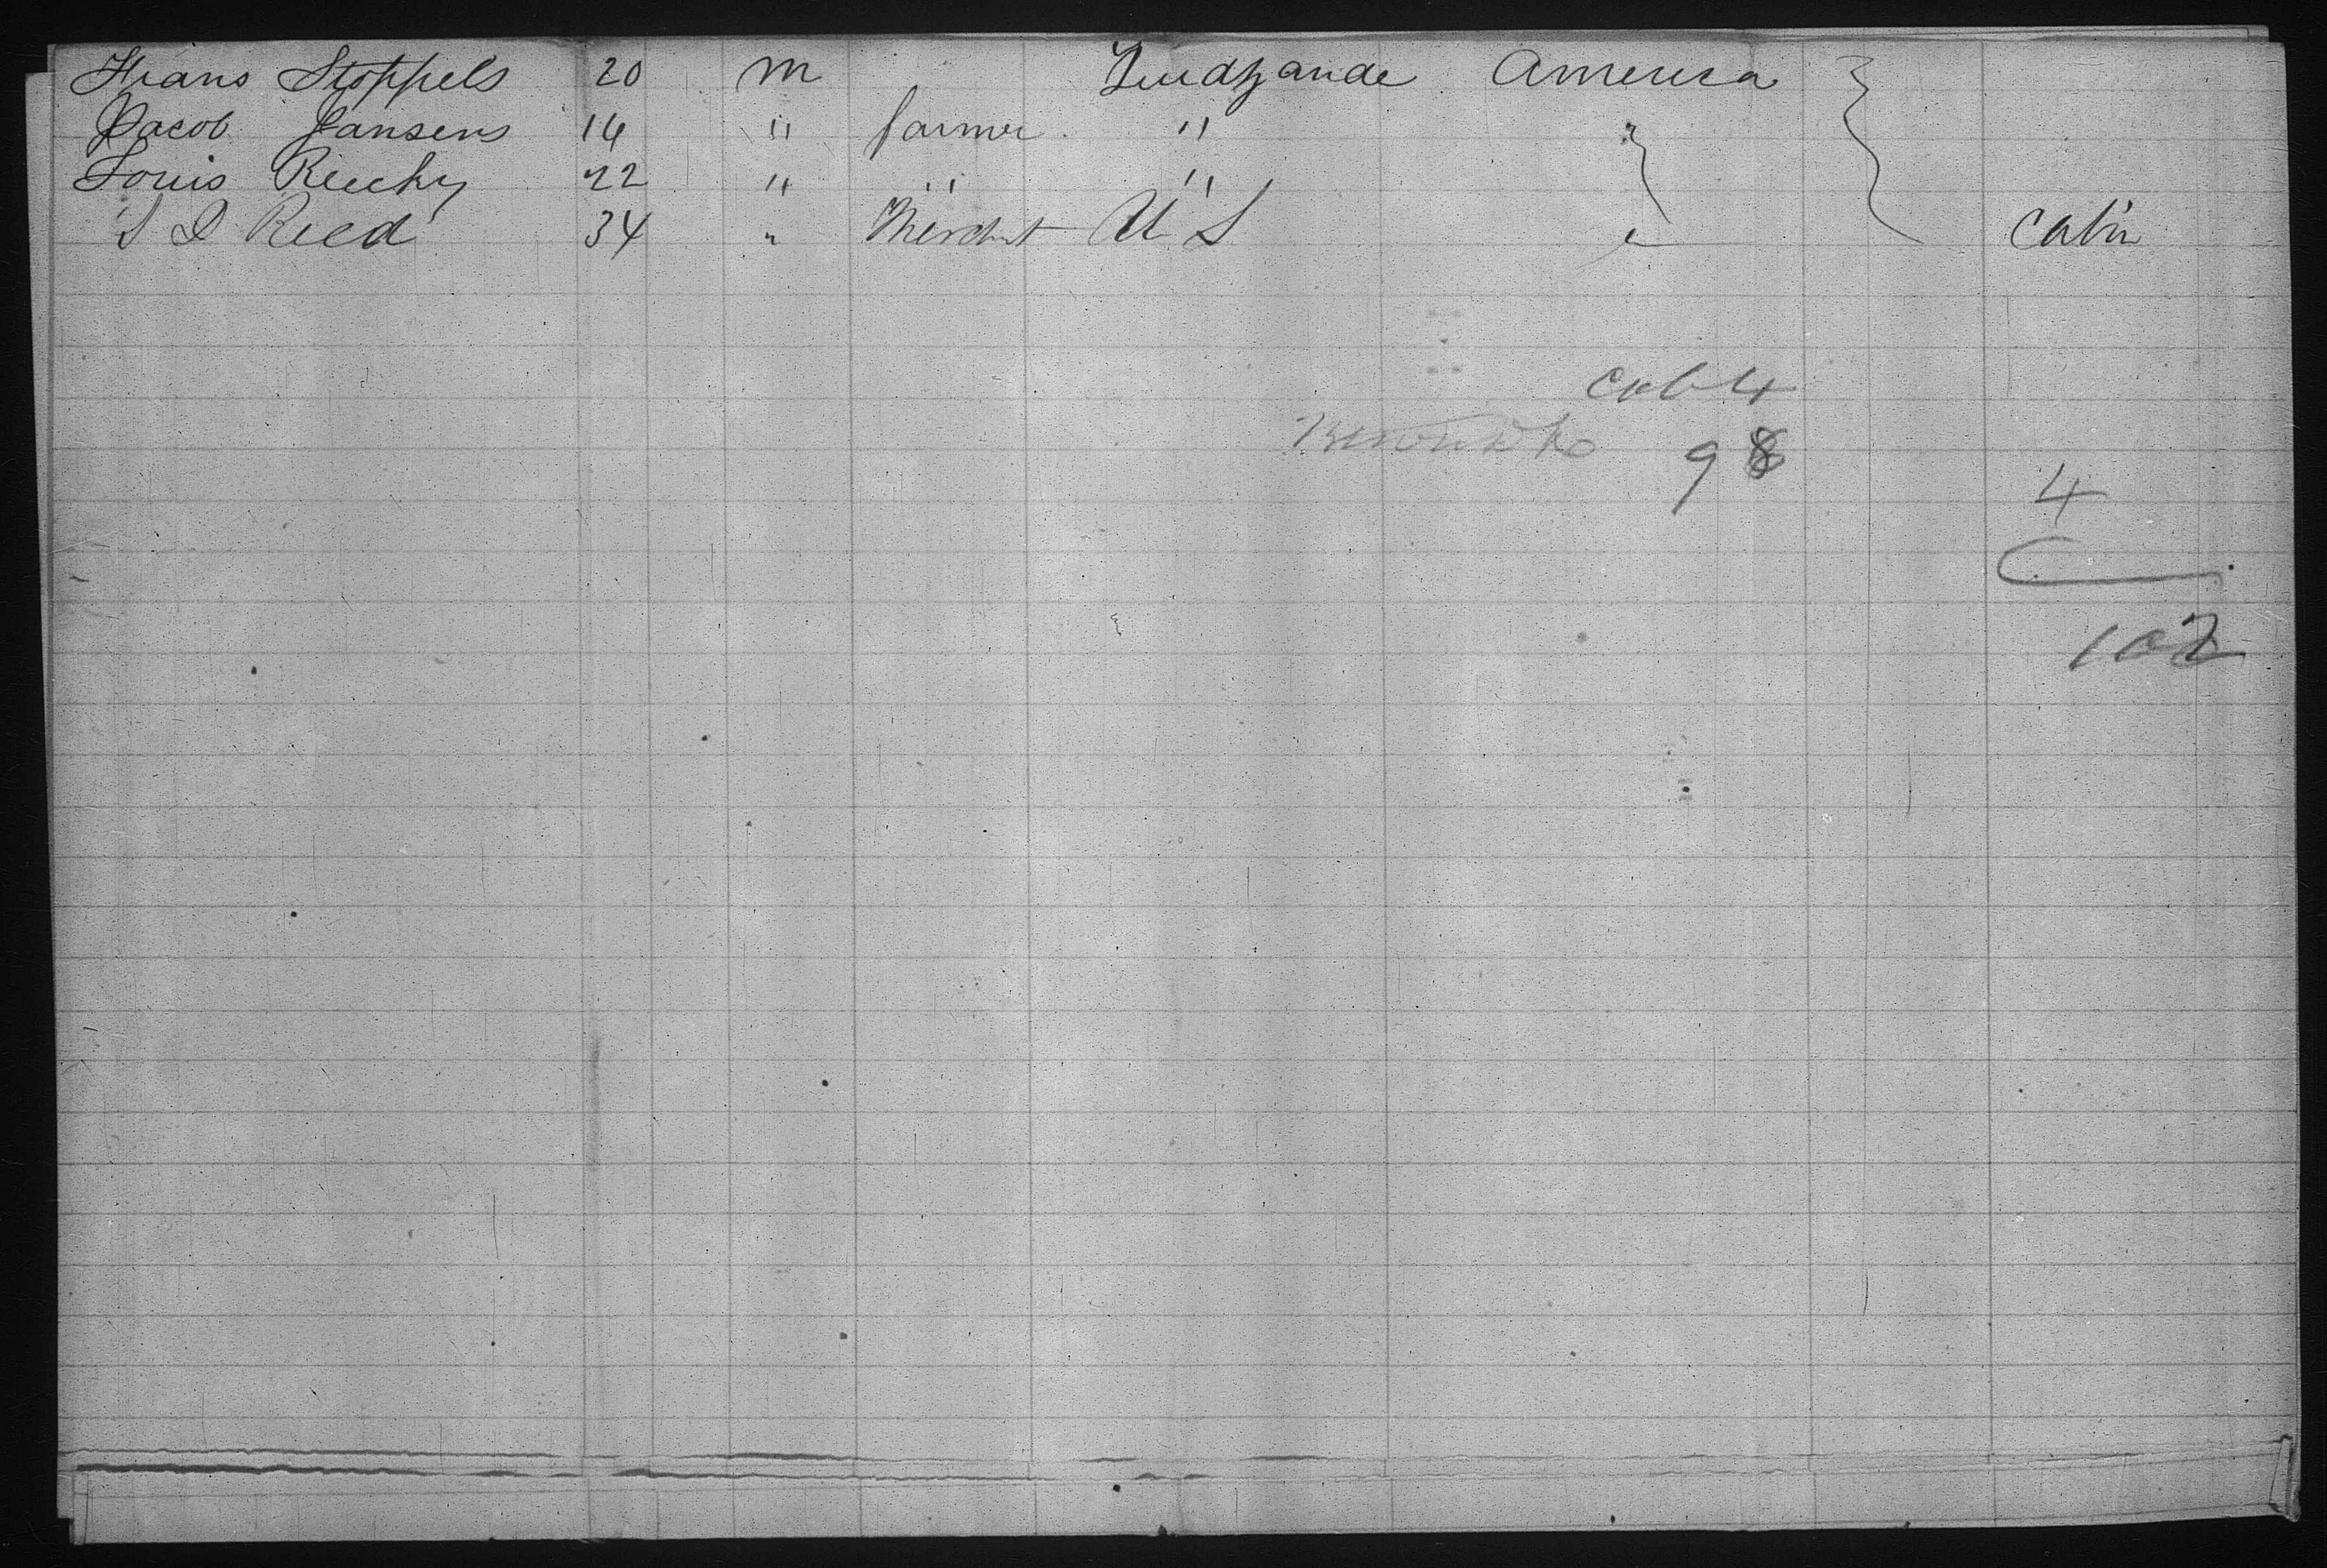 Frans Stoppels 20 m Zuidzande America
Jacob Jansens 14 " farmer " "
Louis Reechy 22 " " "
S D Reed 34 " Merchnt U S Cabin
Cab 4
98
4
102